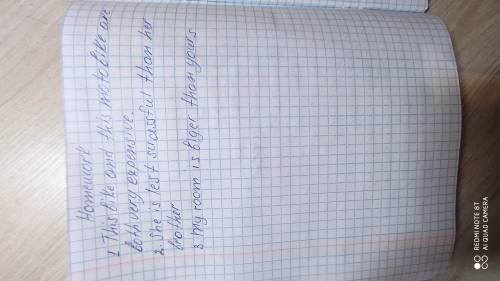 Homework
1 This bike and this motobike are
both very expensive.
2. She is lest sucassful than her
brother
3. My room is biger than yours
REDMI NOTE 8T
AI QUAD CAMERA